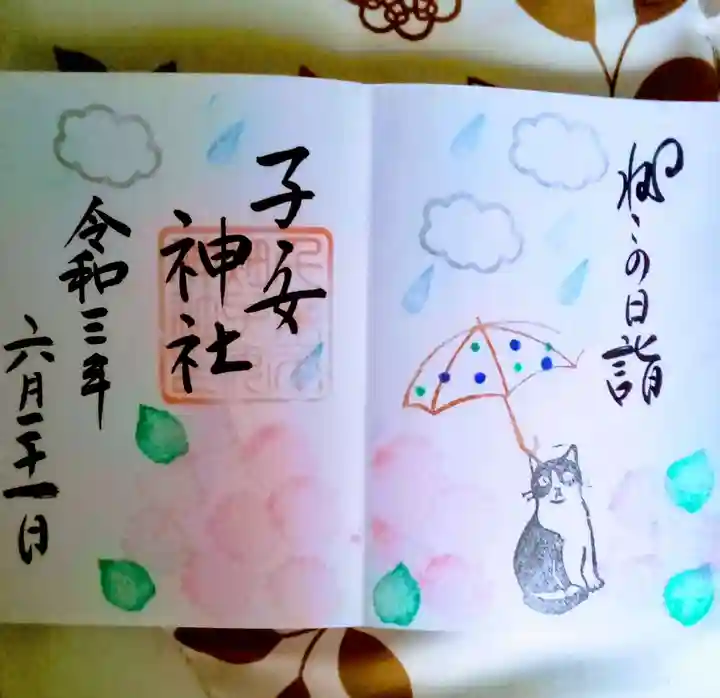 ねこの日詣
子安
神社
令和三年
六月二十一日